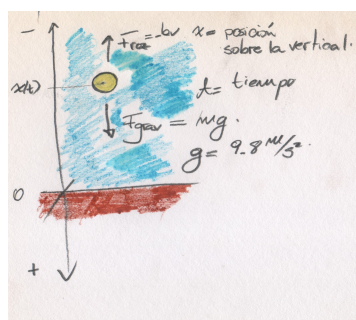 -
F roz = -bv
x = posición
sobre la vertical.
x(t)
t = tiempo
F grav = mg.
g = 9.8 m/s².
0
+